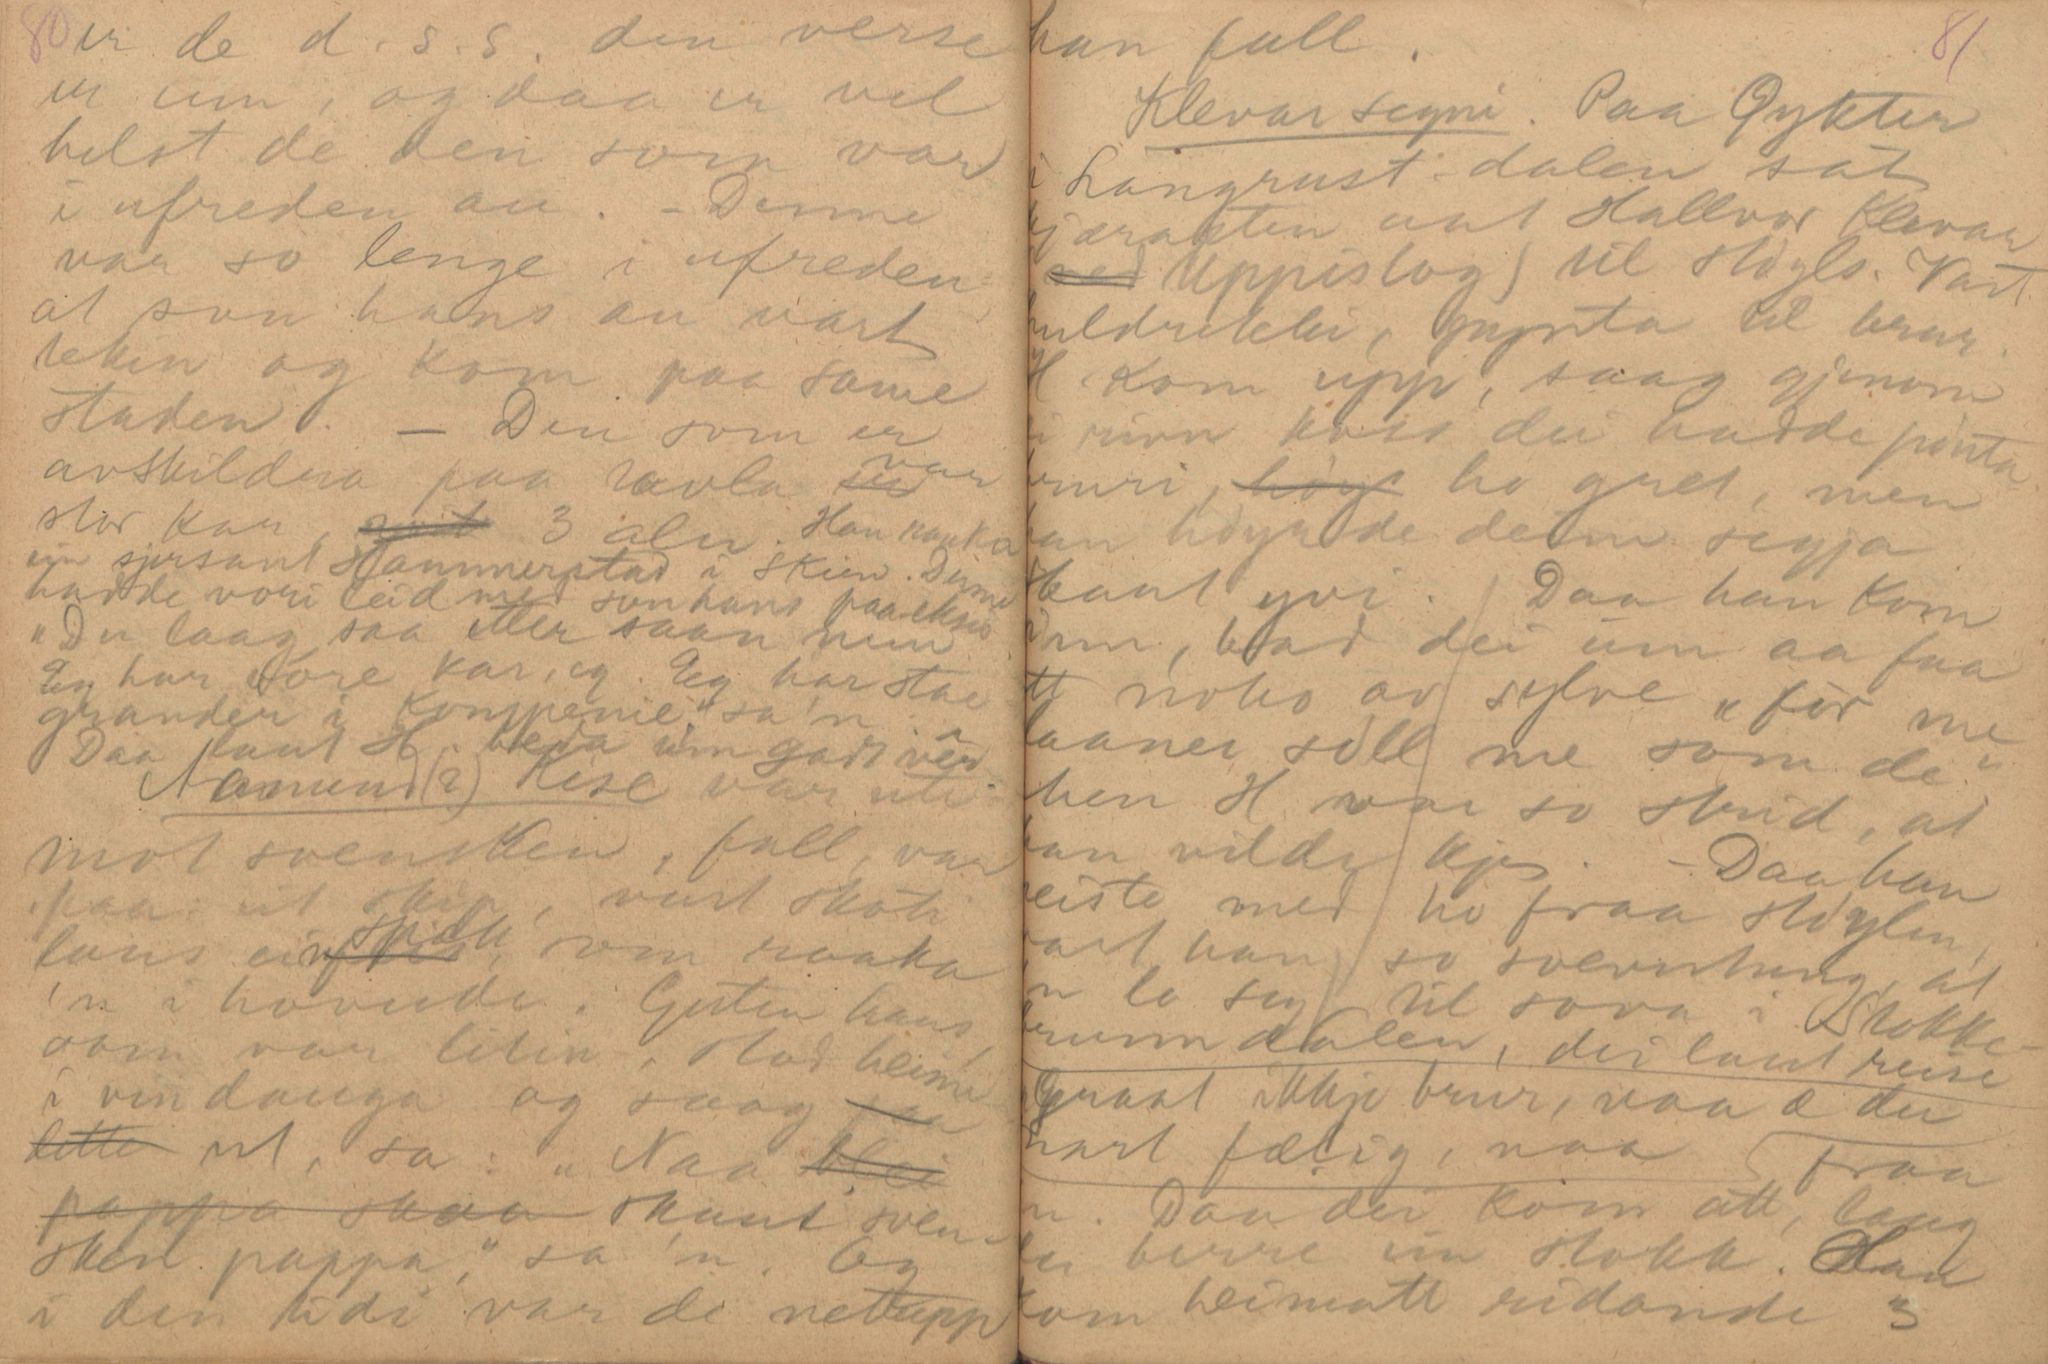 80
er de d.s.s. den verse
er um, og daa er vel
helst de den som var
i ufreden au. – Denne
var so lenge i ufreden
at son hans au vart
tekin og kom paa same
staden. – Den som er
avskildra paa tavla var
stor kar, 3 aln. Han
ein sjersant Hammerstad i Skien. Denne
hadde vori leid med son hans paa
"Du laag saa etter saan min
Eg har vore kar, eg. Eg har stae
grander i Kompenie" sa'n.
Daa laut H. beda um godt vêr
Aamund (?) Rise var uti
mot svensken, fall, var
paa eit skip, vart skoti
laus ein spik, som raaka
'n i hovude. Guten hans,
som var liten, stod heime
i vindauga og saag saa
lette ut, sa: "Naa blei
pappa skaa skaut sven-
sken pappa," sa 'n. Og
i den tidi var de nettupp
81
han fall.
Klevar segni. Paa Qykter
i Langrust-dalen sat
kjærasten aat Hallvor Klevar
Uppistog) til støyls. Vart
huldretekki, pynta til brur.
H kom upp, saag gjenom
ei rivn koss dei hadde pynta
bruri, høyr ho gret, men
han høyrde deim segja
skaut yvi. Daa han kom
inn, bad dei um aa faa
att noko av sylve "for me
laaner sill me som de
hen H var so strid, at
han vilde kjø. – Daa han
reiste med ho fraa støylen,
vart han so svevntung, at
'n la seg til sova i Stokke-
brunndalen, dei laut reise
Graat ikkje brur, vaa æ der
snart fælig, vaa
fraa
'n. Daa dei kom att, laag
der berre ein stokk. Han
kom heimatt ridande 3